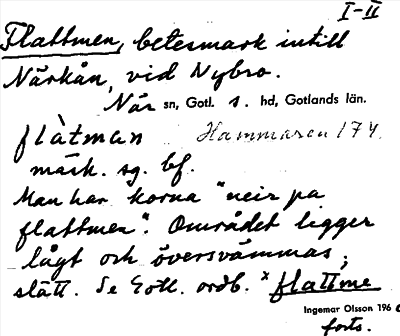 I-II
Flattmen, betesmark intill
Närkån, vid Nybro.
När sn, Gotl. s. hd, Gotlands län.
flàtman Hammaren 174.
mask. sg. bf.
Man har korna "neir pa
flattmen". Området ligger
lågt och översvämmas;
slätt. Se Gotl. ordb. x flattme
Ingemar Olsson 196
forts.